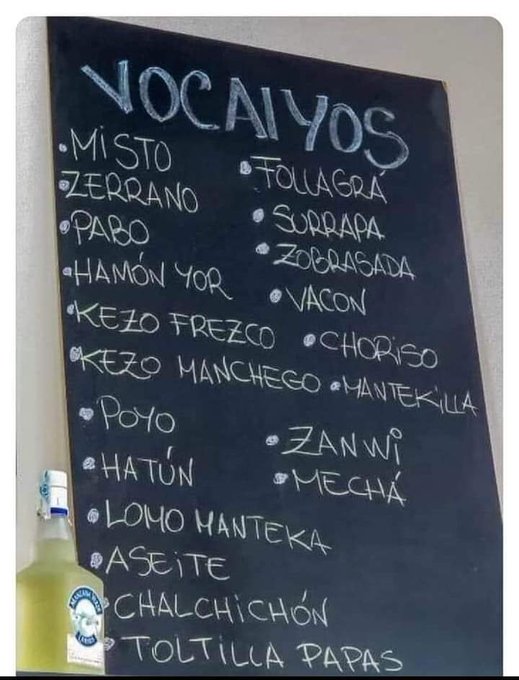 VOCAIYOS
• MISTO
• ZERRANO
• PABO
• HAMÓN YOR
• KEZO FREZCO
• KEZO MANCHEGO
• POYO
• HATÚN
• LOMO MANTEKA
• ASEITE
• CHALCHICHÓN
• TOLTILLA PAPAS
• FOLLAGRÁ
• SURRAPA
• ZOBRASADA
• VACON
• CHORISO
• MANTEKILLA
• ZANWI
• MECHÁ